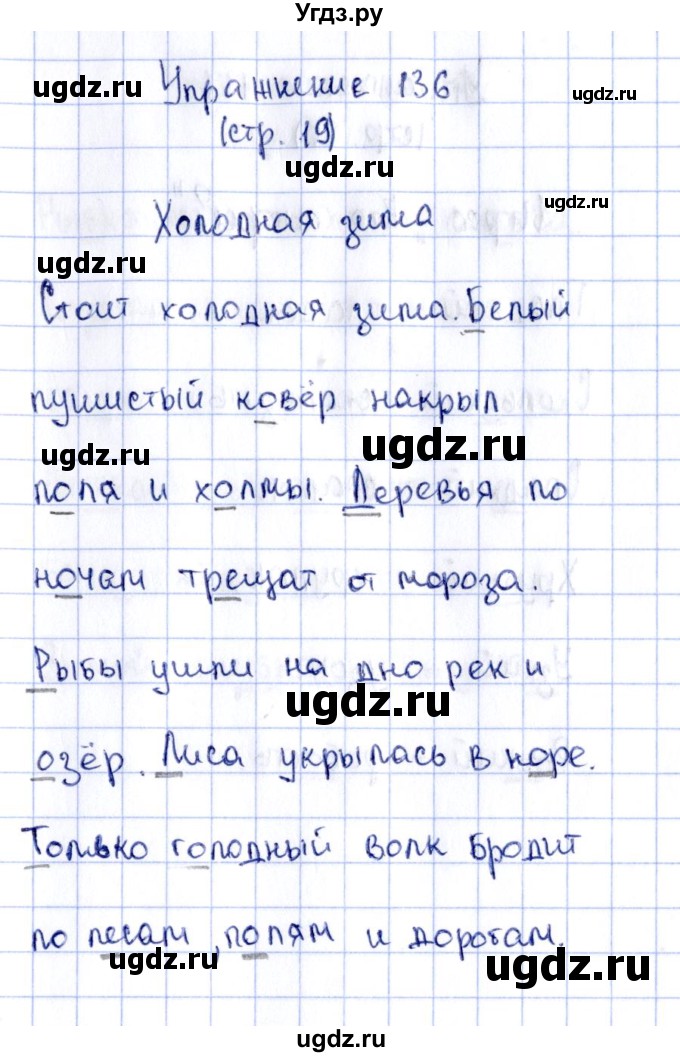 Угдз.ру
ugdz.ru Упражнение 136 ugdz.ru
(стр. 19)
ugdz.ru
ugdz.ru
Холодная зима
ugdz.ru
Стоит холодная зима. Белый
пушистый ковёр накрыл
ugdz.ru ugdz.ru
поля и холмы. Деревья по
ночам трещат от мороза.
Рыбы ушли на дно рек и
ugdz.ru
озёр. Лиса укрылась в норе.
Только голодный волк бродит
по лесам, полям и дорогам.
ugdz.ru ugdz.ru
ugdz.ru